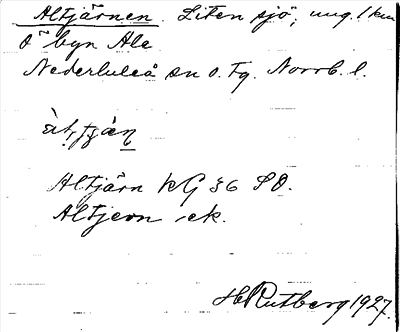 Altjärnen. Liten sjö, ung. 1 km
Ö byn Ale
Nederluleå sn o. tg. Norrb. l.
Altjärn KG 36 SO.
Altjern ek.
H Rutberg 1927.